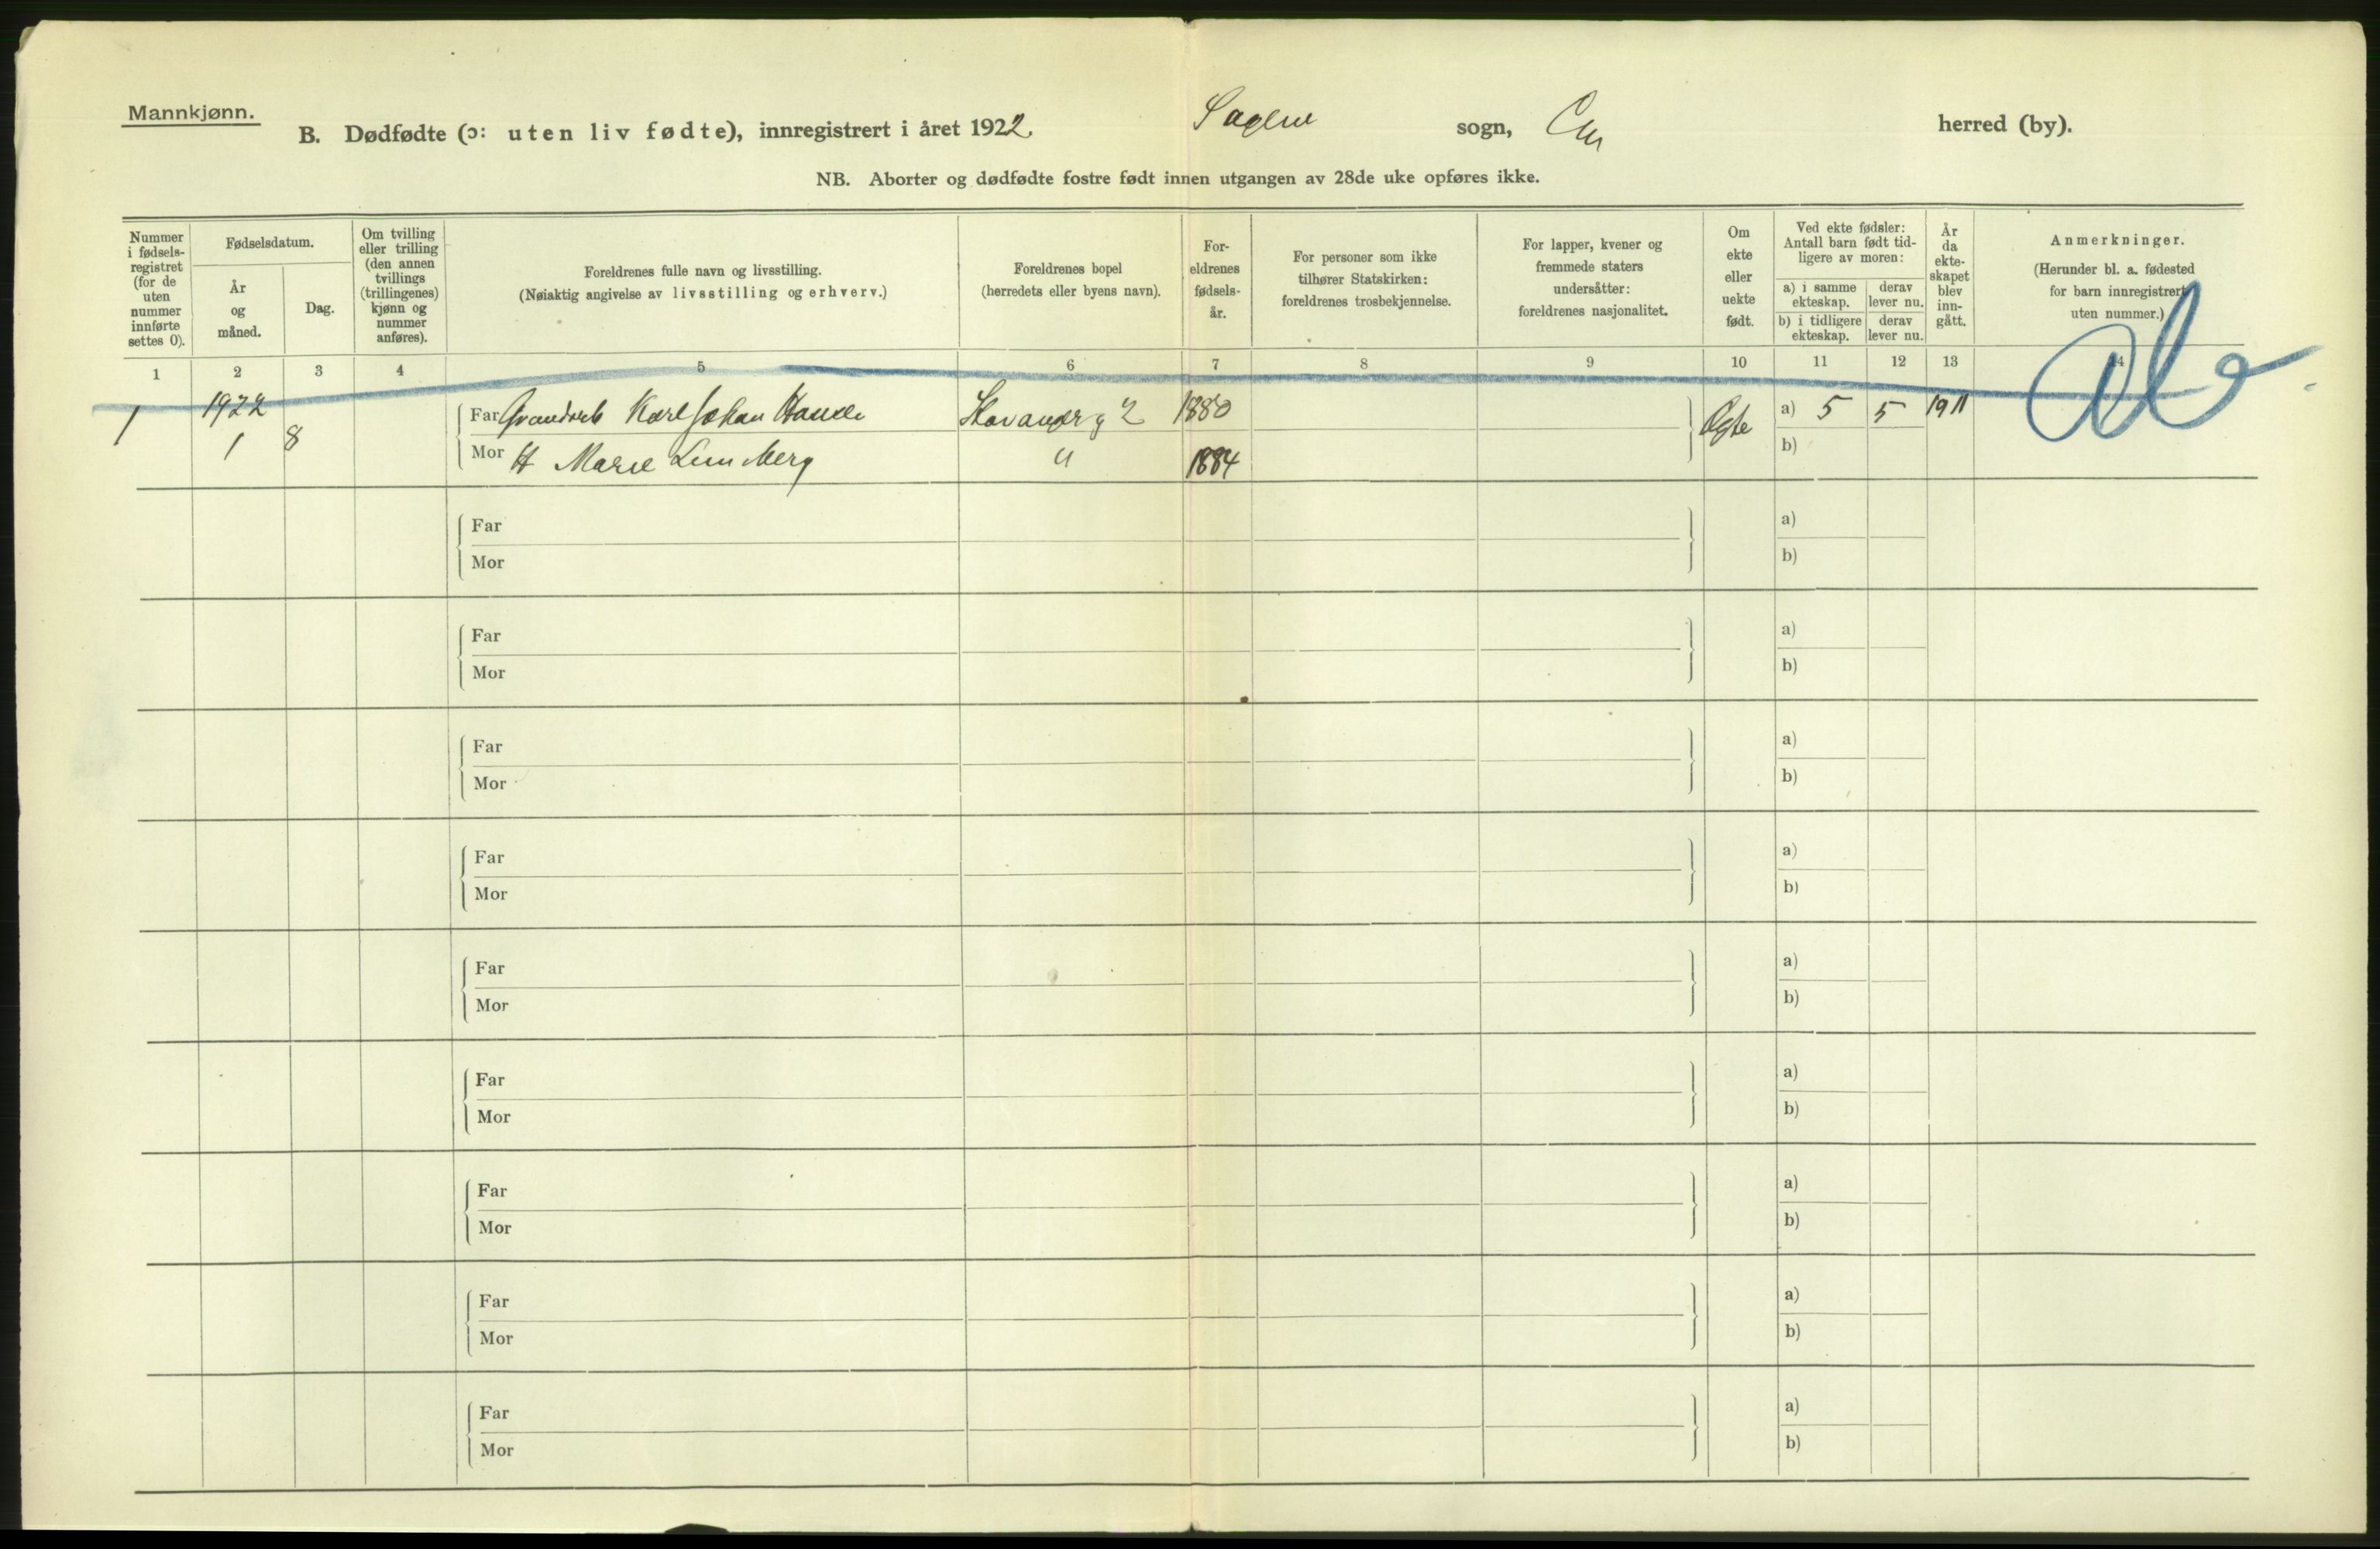 Mannkjønn.
B. Dødfødte (ɔ: uten liv fødte), innregistrert i året 1922. Sagene sogn, herred (by).
NB. Aborter og dødfødte fostre født innen utgangen av 28de uke opføres ikke.
Nummer i fødsels-registret (for de uten nummer innførte settes 0).
Fødselsdatum.
År og måned.
Dag.
Om tvilling eller trilling (den annen tvillings (trillingenes) kjønn og nummer anføres).
Foreldrenes fulle navn og livsstilling.
(Nøiaktig angivelse av livsstilling og erhverv.)
Foreldrenes bopel
(herredets eller byens navn).
For-eldrenes fødsels-år.
For personer som ikke tilhører Statskirken: foreldrenes trosbekjennelse.
For lapper, kvener og fremmede staters undersåtter: foreldrenes nasjonalitet.
Om ekte eller uekte født.
Ved ekte fødsler: Antall barn født tid-ligere av moren:
a) i samme ekteskap.
derav lever nu.
b) i tidligere ekteskap.
derav lever nu.
År da ekte-skapet blev inn-gått.
Anmerkninger.
(Herunder bl. a. fødested for barn innregistrert uten nummer.)
1 2 3 4 5 6 7 8 9 10 11 12 13 14
1 1922 Far Karl Johan Hansen Stavangerg 2 1880 Ægte a) 5 5 1911
1 8 Mor H Marie Lundberg " 1884 b)
Far a)
Mor b)
Far a)
Mor b)
Far a)
Mor b)
Far a)
Mor b)
Far a)
Mor b)
Far a)
Mor b)
Far a)
Mor b)
Far a)
Mor b)
Far a)
Mor b)